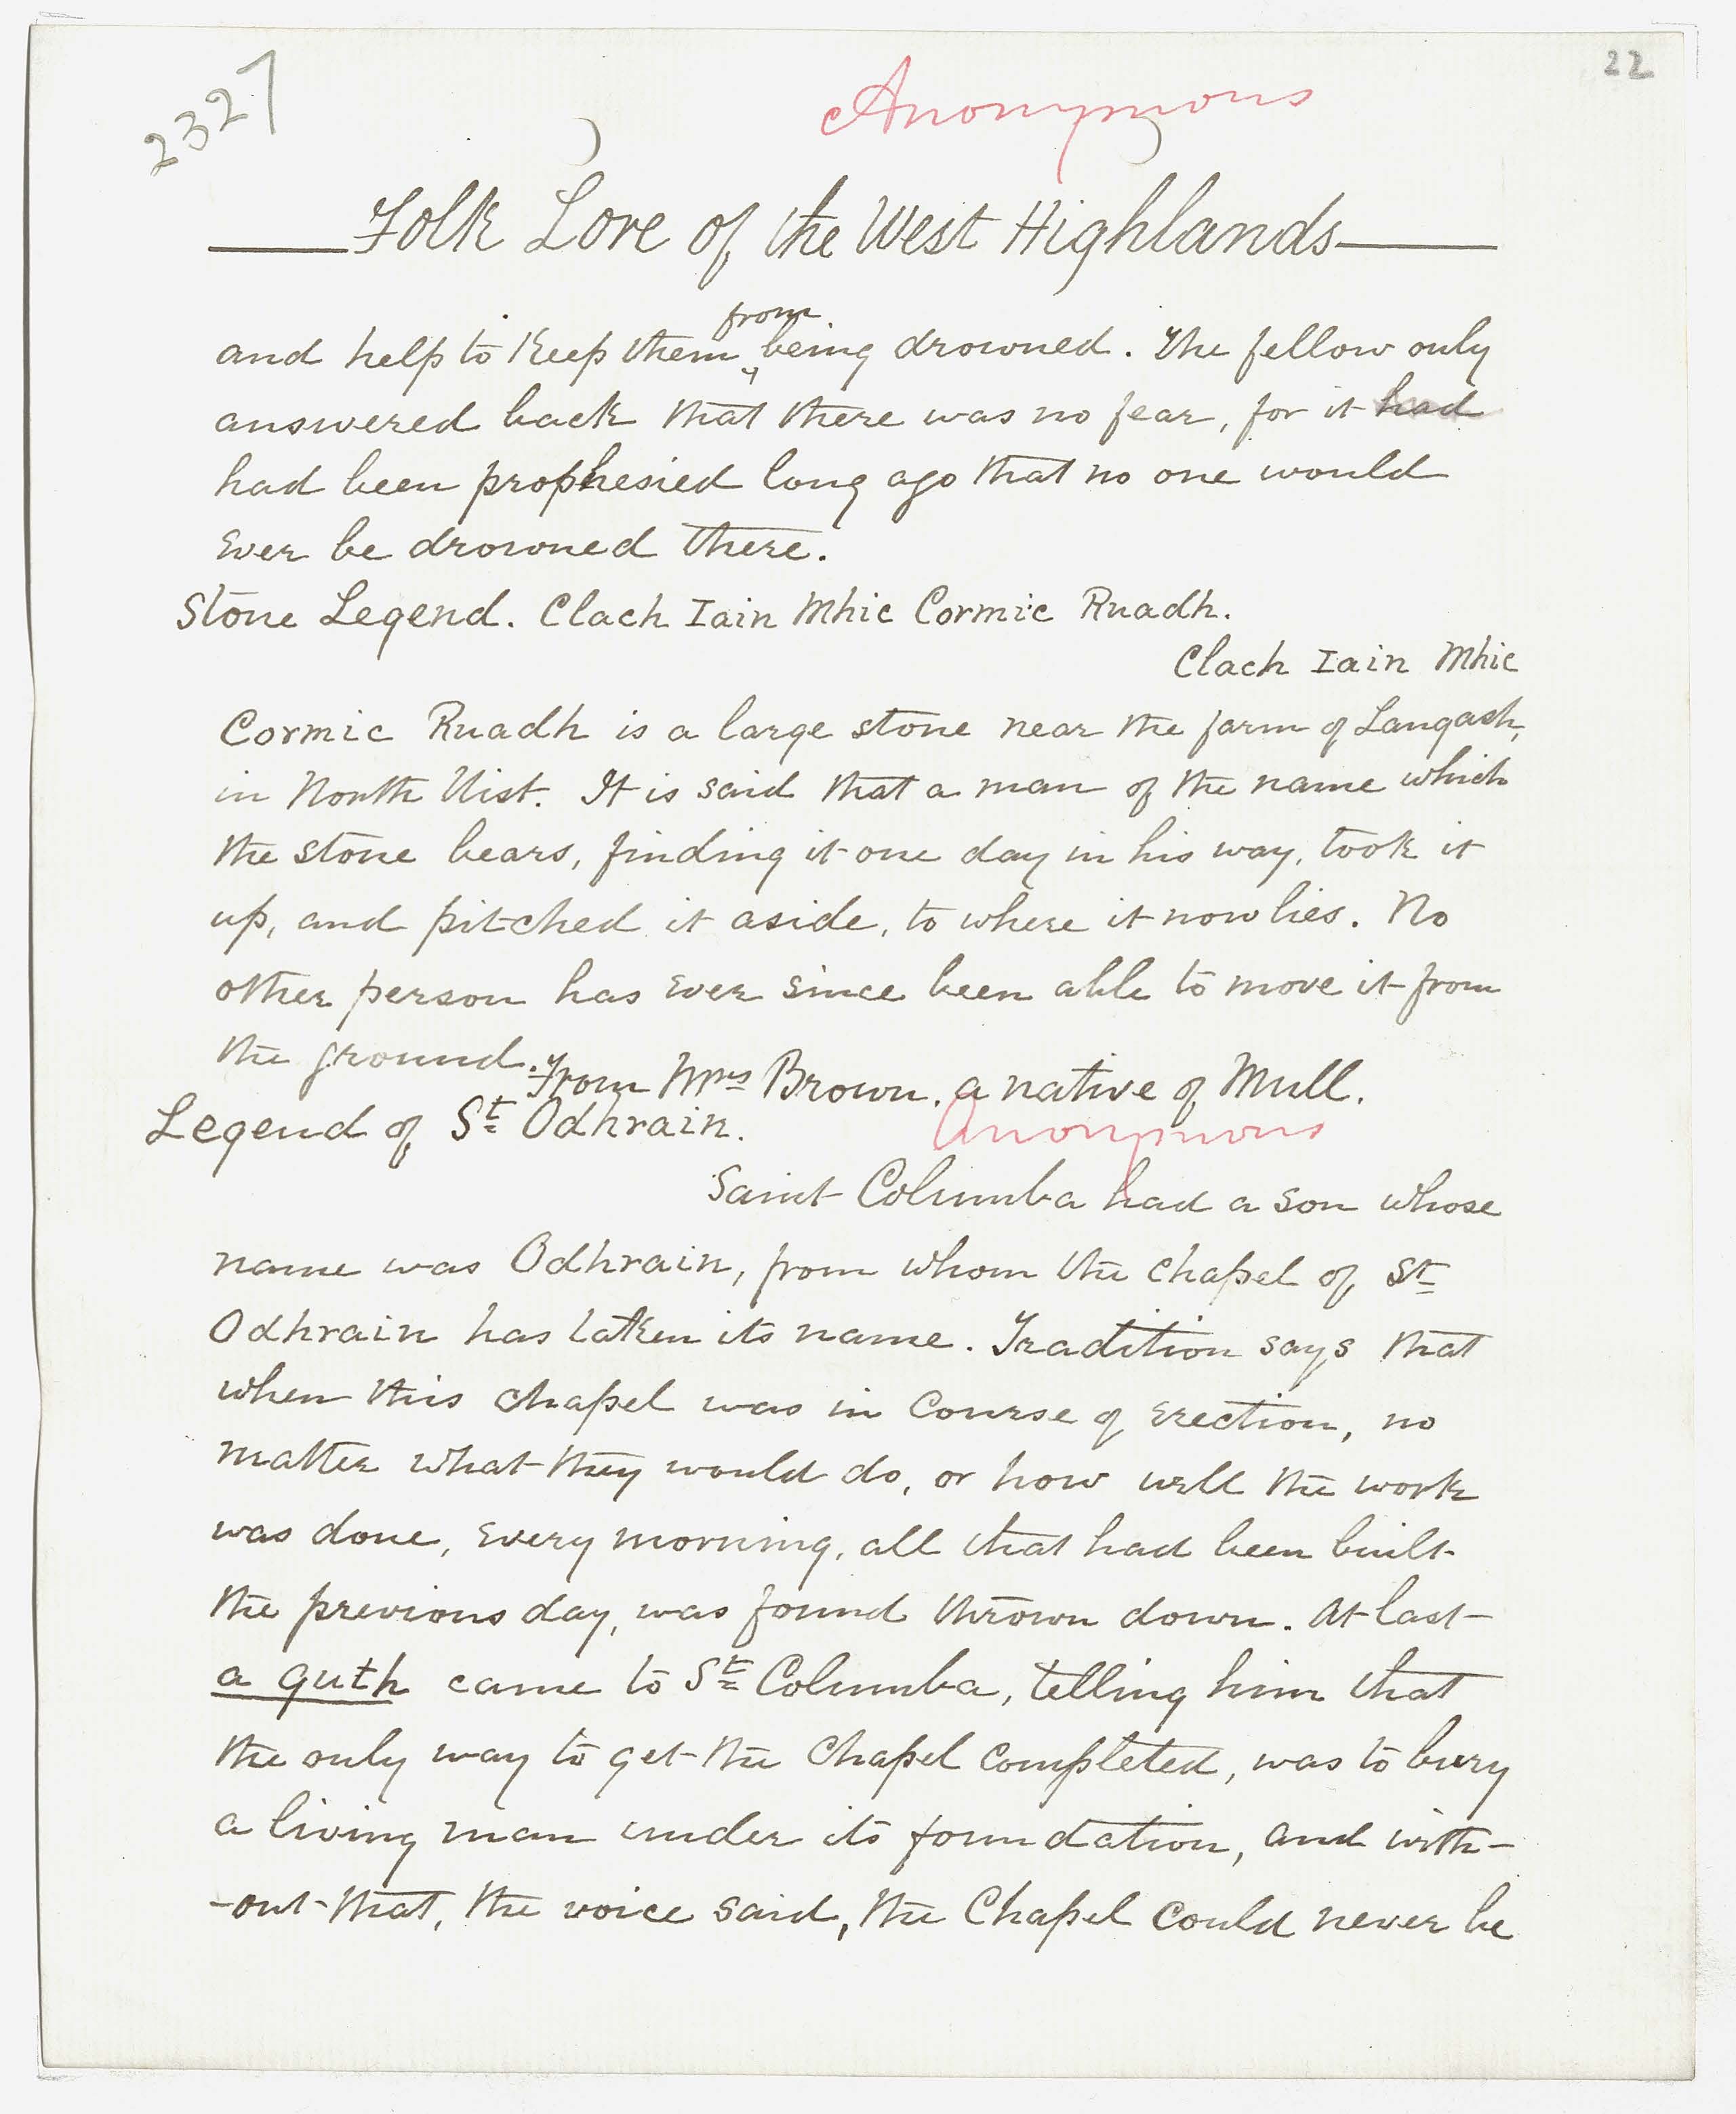 22
2327
Anonymous
Folk Lore of the West Highlands
from
and help to keep them being drowned. The fellow only
answered back that there was no fear, for it had
had been prophesied long ago that no one would
ever be drowned there.
Stone Legend. Clach Iain Mhic Cormic Ruadh.
Clach Iain Mhic
Cormic Ruadh is a large stone near the farm of Langash,
in North Uist. It is said that a man of the name which
the stone bears, finding it one day in his way, took it
up, and pitched it aside, to where it now lies. No
other person has ever since been able to move it from
the ground.
From Mrs Brown, a native of Mull.
Legend of St Odhrain.
Anonymous
Saint Columba had a son whose
name was Odhrain, from whom the chapel of St
Odhrain has taken its name. Tradition says that
when this chapel was in course of erection, no
matter what they would do, or how well the work
was done, every morning, all that had been built
the previous day, was found thrown down. At last
a guth came to St Columba, telling him that
the only way to get the Chapel completed, was to bury
a living man under its foundation, and with-
-out that, the voice said, the Chapel could never be